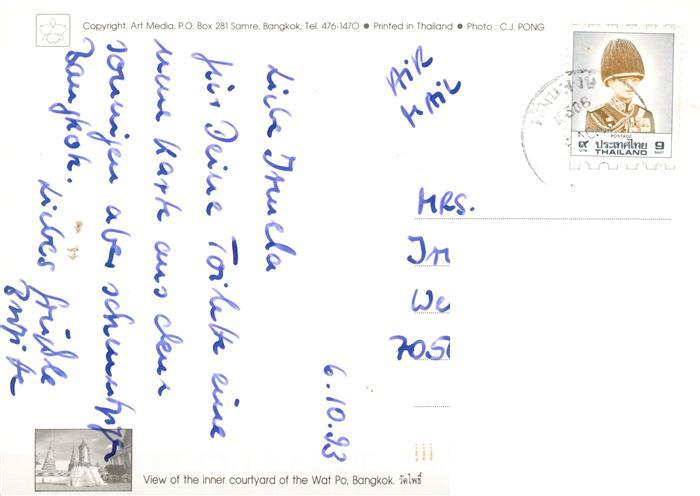 Copyright, Art Media, P.O. Box 281 Samre, Bangkok, Tel. 476-1470 ● Printed in Thailand ● Photo : C.J. PONG
AIR
MAIL
POSTAGE
๙ ประเทศไทย 9
บาท THAILAND BAHT
6.10.93
Liebe Irmela
für Deine Toilette eine
neue Karte aus dem
sonnigen aber schmutzigen
Bangkok.
Liebe Grüße
Brigitte
MRS.
Irm
We
7050
View of the inner courtyard of the Wat Po, Bangkok. วัดโพธิ์